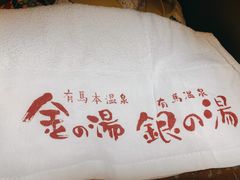 有馬本温泉
金の湯
有馬温泉
銀の湯